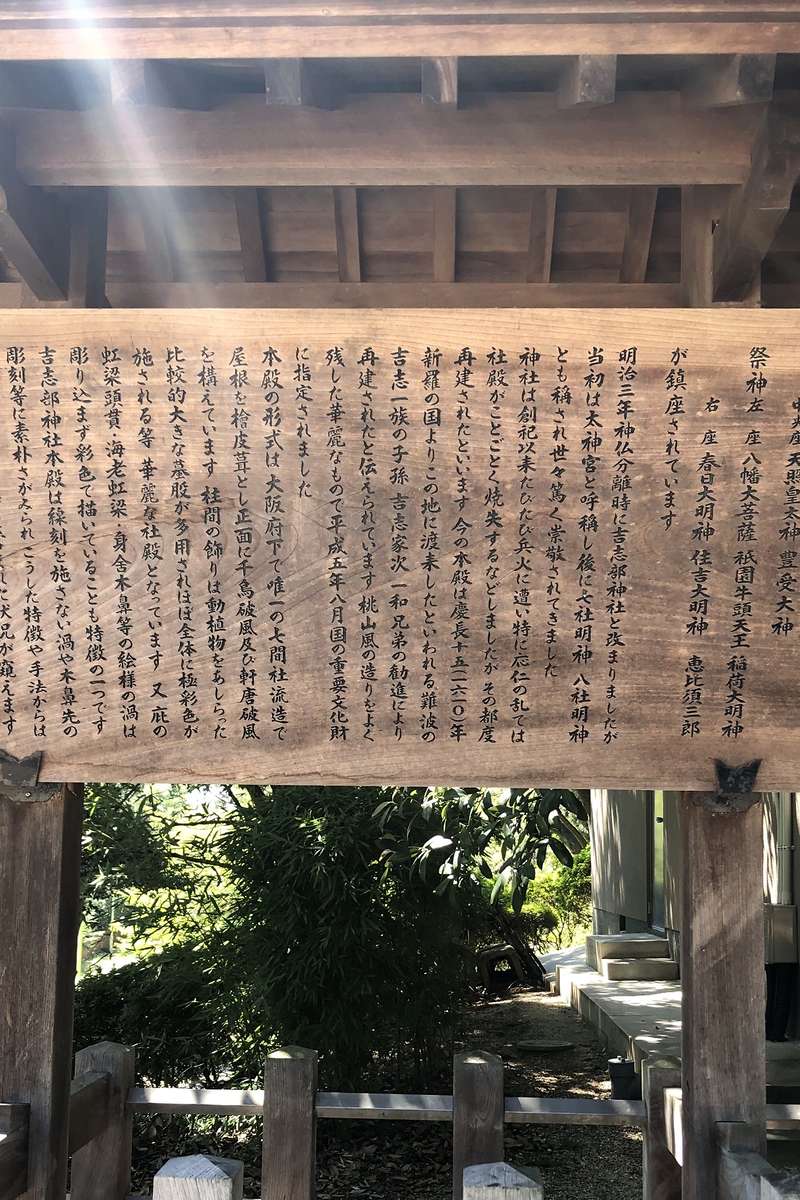 中央座 天照皇大神 豊受大神
祭神左 座 八幡大菩薩 祇園牛頭天王 稲荷大明神
右 座 春日大明神 住吉大明神 恵比須三郎
が鎮座されています
明治三年神仏分離時に吉志部神社と改まりましたが
当初は太神宮と呼称し後に七社明神 八社明神
とも称され世々篤く崇敬されてきました
神社は創祀以来たひたび兵火に遭い特に応仁の乱では
社殿がことごとく焼失するなどしましたが その都度
再建されたといいます 今の本殿は慶長十五(一六一〇)年
新羅の国よりこの地に渡来したといわれる難波の
吉志一族の子孫 吉志家次 一和兄弟の勧進により
再建されたと伝えられています 桃山風の造りをよく
残した華麗なもので平成五年八月国の重要文化財
に指定されました
本殿の形式は 大阪府下で唯一の七間社流造で
屋根を檜皮葺とし正面に千鳥破風及び軒唐破風
を構えています 柱間の飾りは動植物をあしらった
比較的大きな蟇股が多用されほぼ全体に極彩色が
施される等 華麗な社殿となっています 又 庇の
虹梁頭貫・海老虹梁 身舎木鼻等の絵様の渦は
彫り込まず彩色で描いていることも特徴の一つです
吉志部神社本殿は線刻を施さない渦や木鼻先の
彫刻等に素朴さがみられ こうした特徴や手法からは